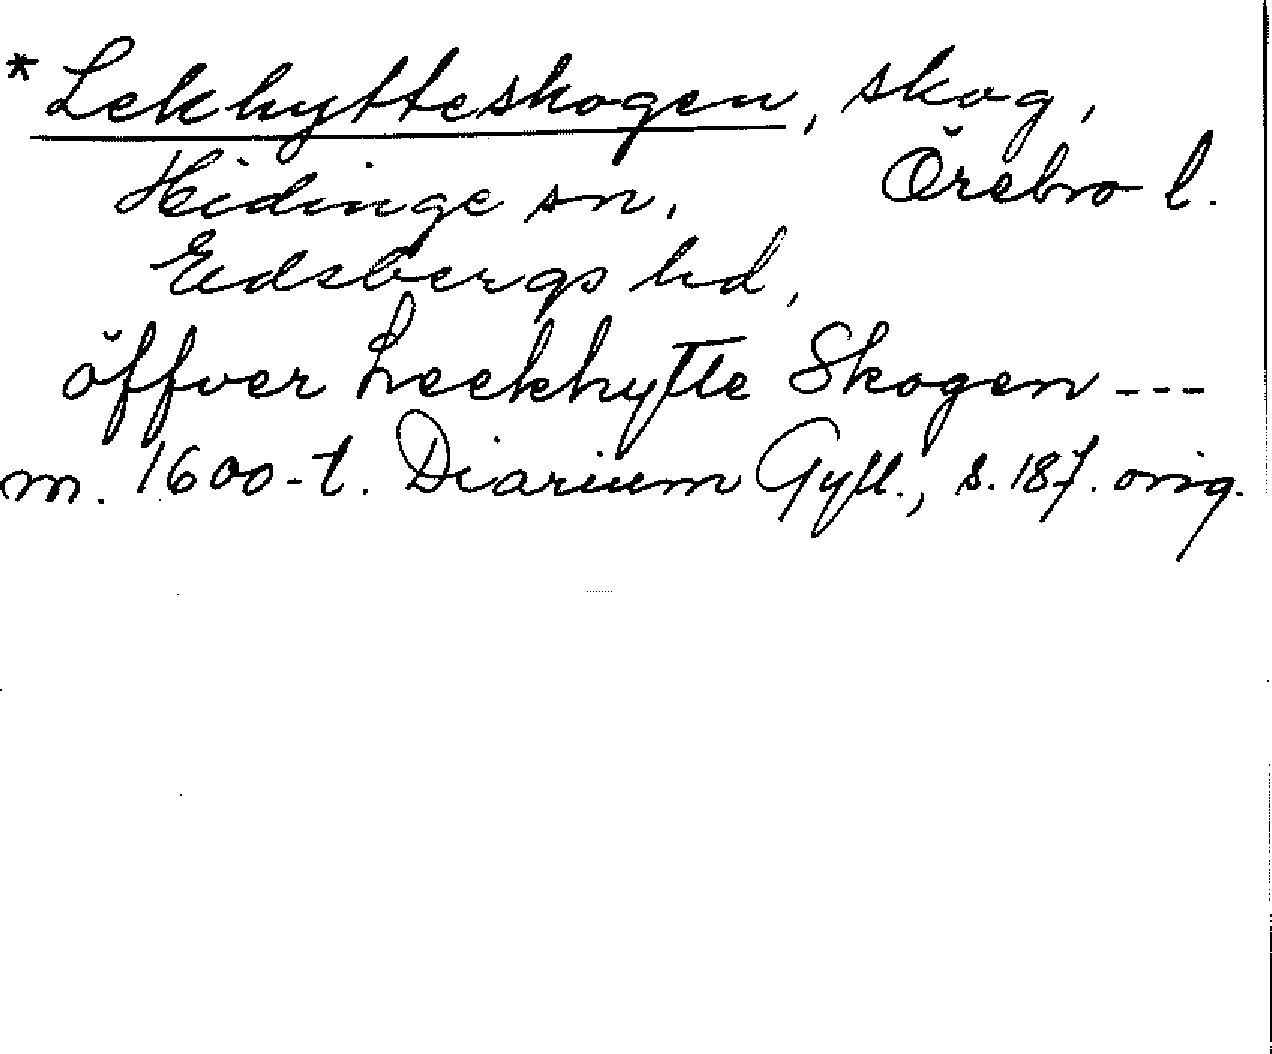 *Lekhytteskogen, skog,
Hidinge sn, Örebro l.
Edsbergs hd,
öffver Leekhytte Skogen ---
m. 1600-t. Diarium Gyll., s. 187. orig.